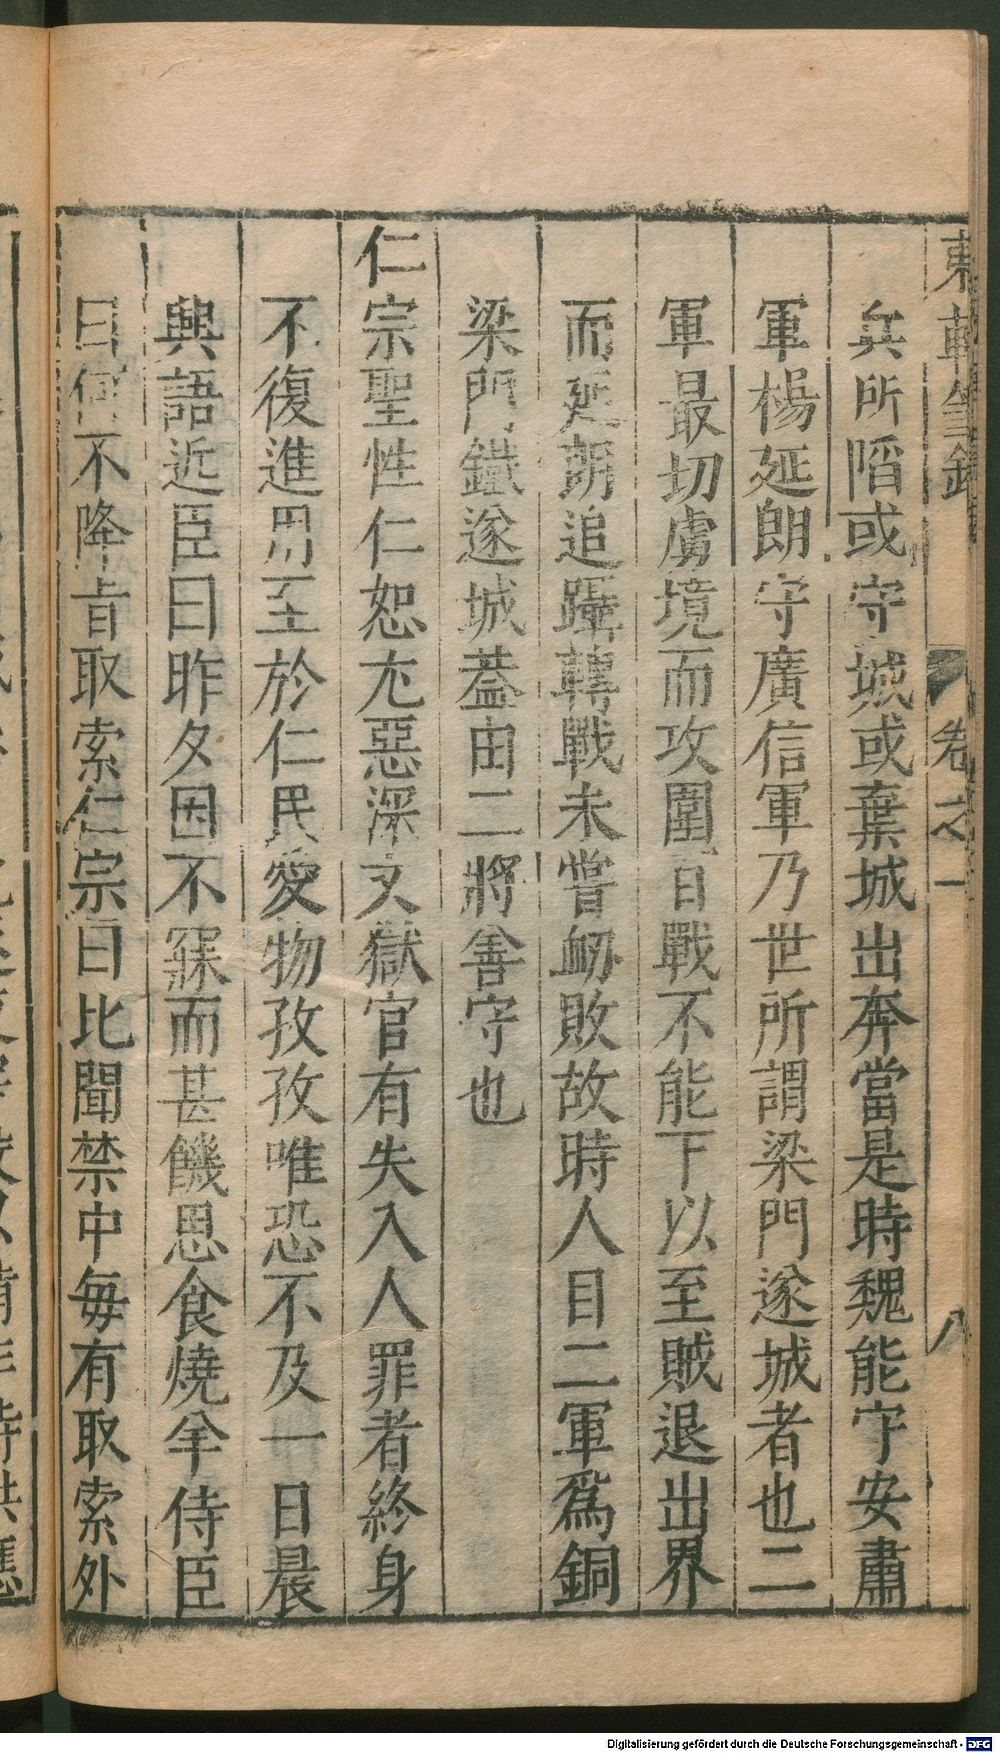 東軒筆錄 卷之一 八
兵所陷或守城或棄城出奔當是時魏能守安肅
軍楊延朗守廣信軍乃世所謂梁門遂城者也二
軍最切虜境而攻圍百戰不能下以至賊退出界
而延朗追躡轉戰未嘗衂敗故時人目二軍爲銅
梁門鐵遂城葢由二將善守也
仁宗聖性仁恕尤惡深文獄官有失入人罪者終身
不復進用至於仁民愛物孜孜唯恐不及一日晨
興語近臣曰昨夕因不寐而甚饑思食燒羊侍臣
曰何不降旨取索仁宗曰比聞禁中每有取索外
Digitalisierung gefördert durch die Deutsche Forschungsgemeinschaft - DFG